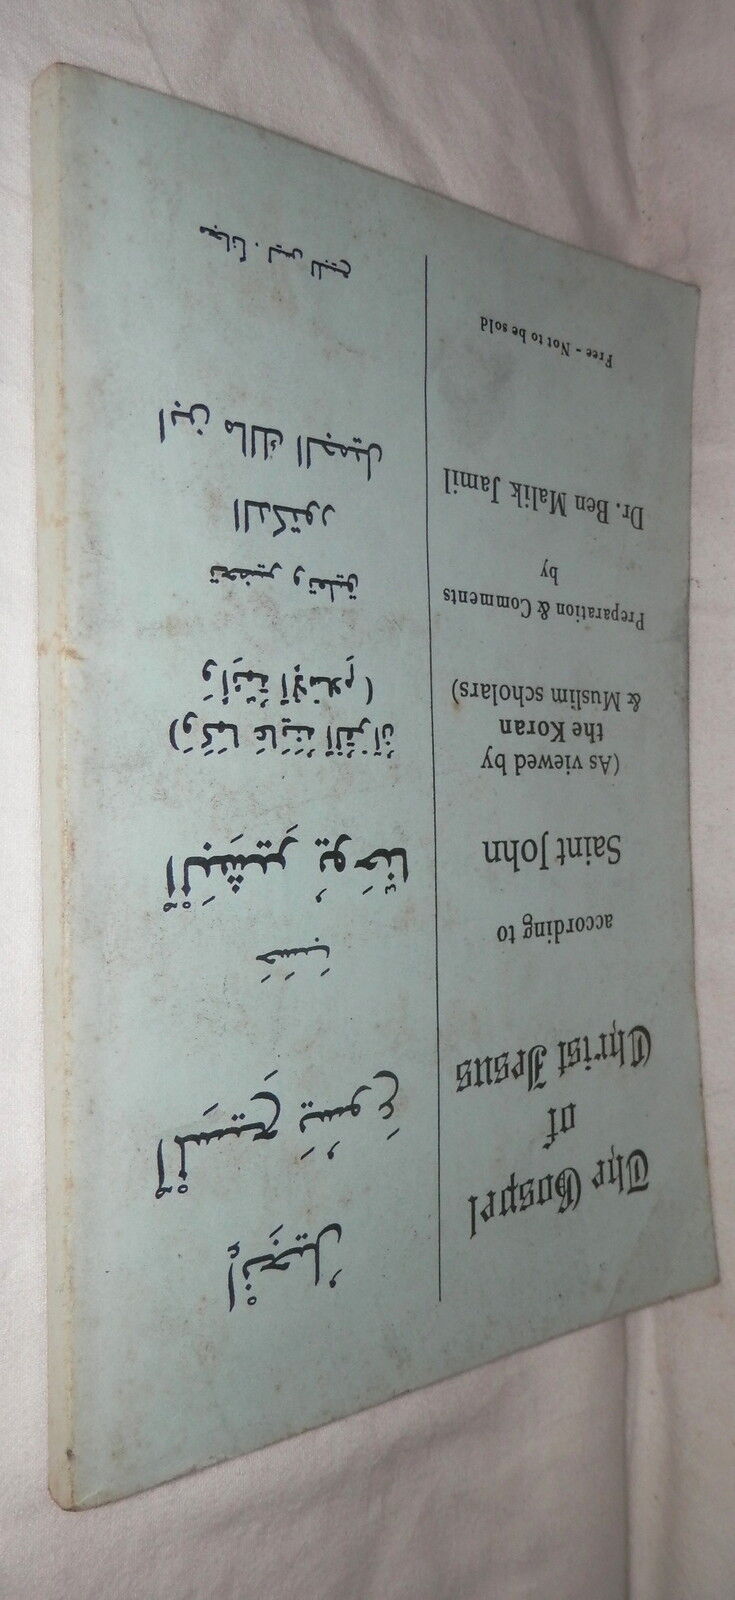 The Gospel
of
Christ Jesus
according to
Saint John
(As viewed by
the Koran
& Muslim scholars)
Preparation & Comments
by
Dr. Ben Malik Jamil
Free - Not to be sold
إِنْجِيلُ
ٱلْمَسِيحِ يَسُوعَ
حَسَبَ
ٱلْبَشِيرِ يُوحَنَّا
(وَكَمَا عَايَنَهُ ٱلْقُرْآنُ
وَأَئِمَّةُ ٱلْإِسْلَامِ)
تحضير وتعليق
الدكتور
ابن مالك الجميل
مجاناً . ليس للبيع